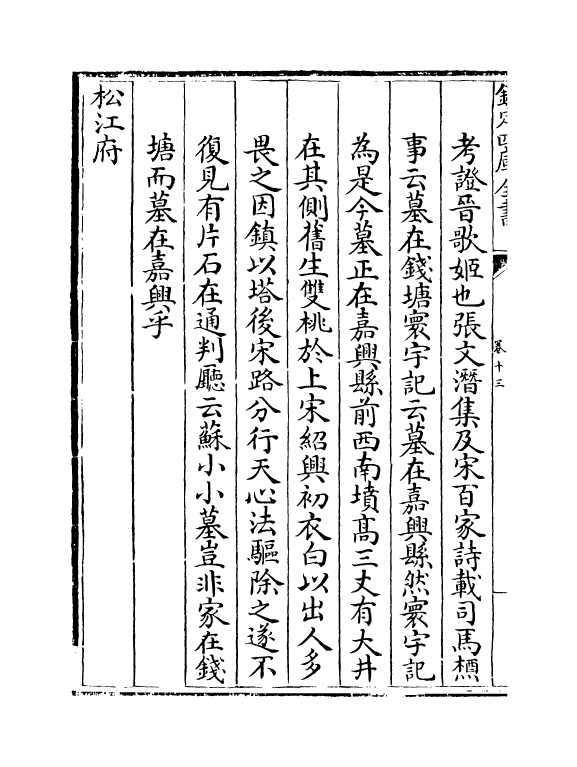 欽定四庫全書
卷十三
考證晉歌姬也張文潛集及宋百家詩載司馬槱
事云墓在錢塘寰宇記云墓在嘉興縣然寰宇記
為是今墓正在嘉興縣前西南墳髙三丈有大井
在其側舊生雙桃於上宋紹興初衣白以出人多
畏之因鎮以塔後宋路分行天心法驅除之遂不
復見有片石在通判廳云蘇小小墓豈非家在錢
塘而墓在嘉興乎
松江府